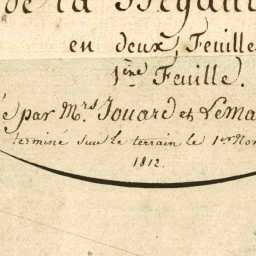 de la
en deux Feuille
1ère Feuille.
é par Mrs. Jouard et LeMa
terminé sur le terrain le 1er Nov
1812.